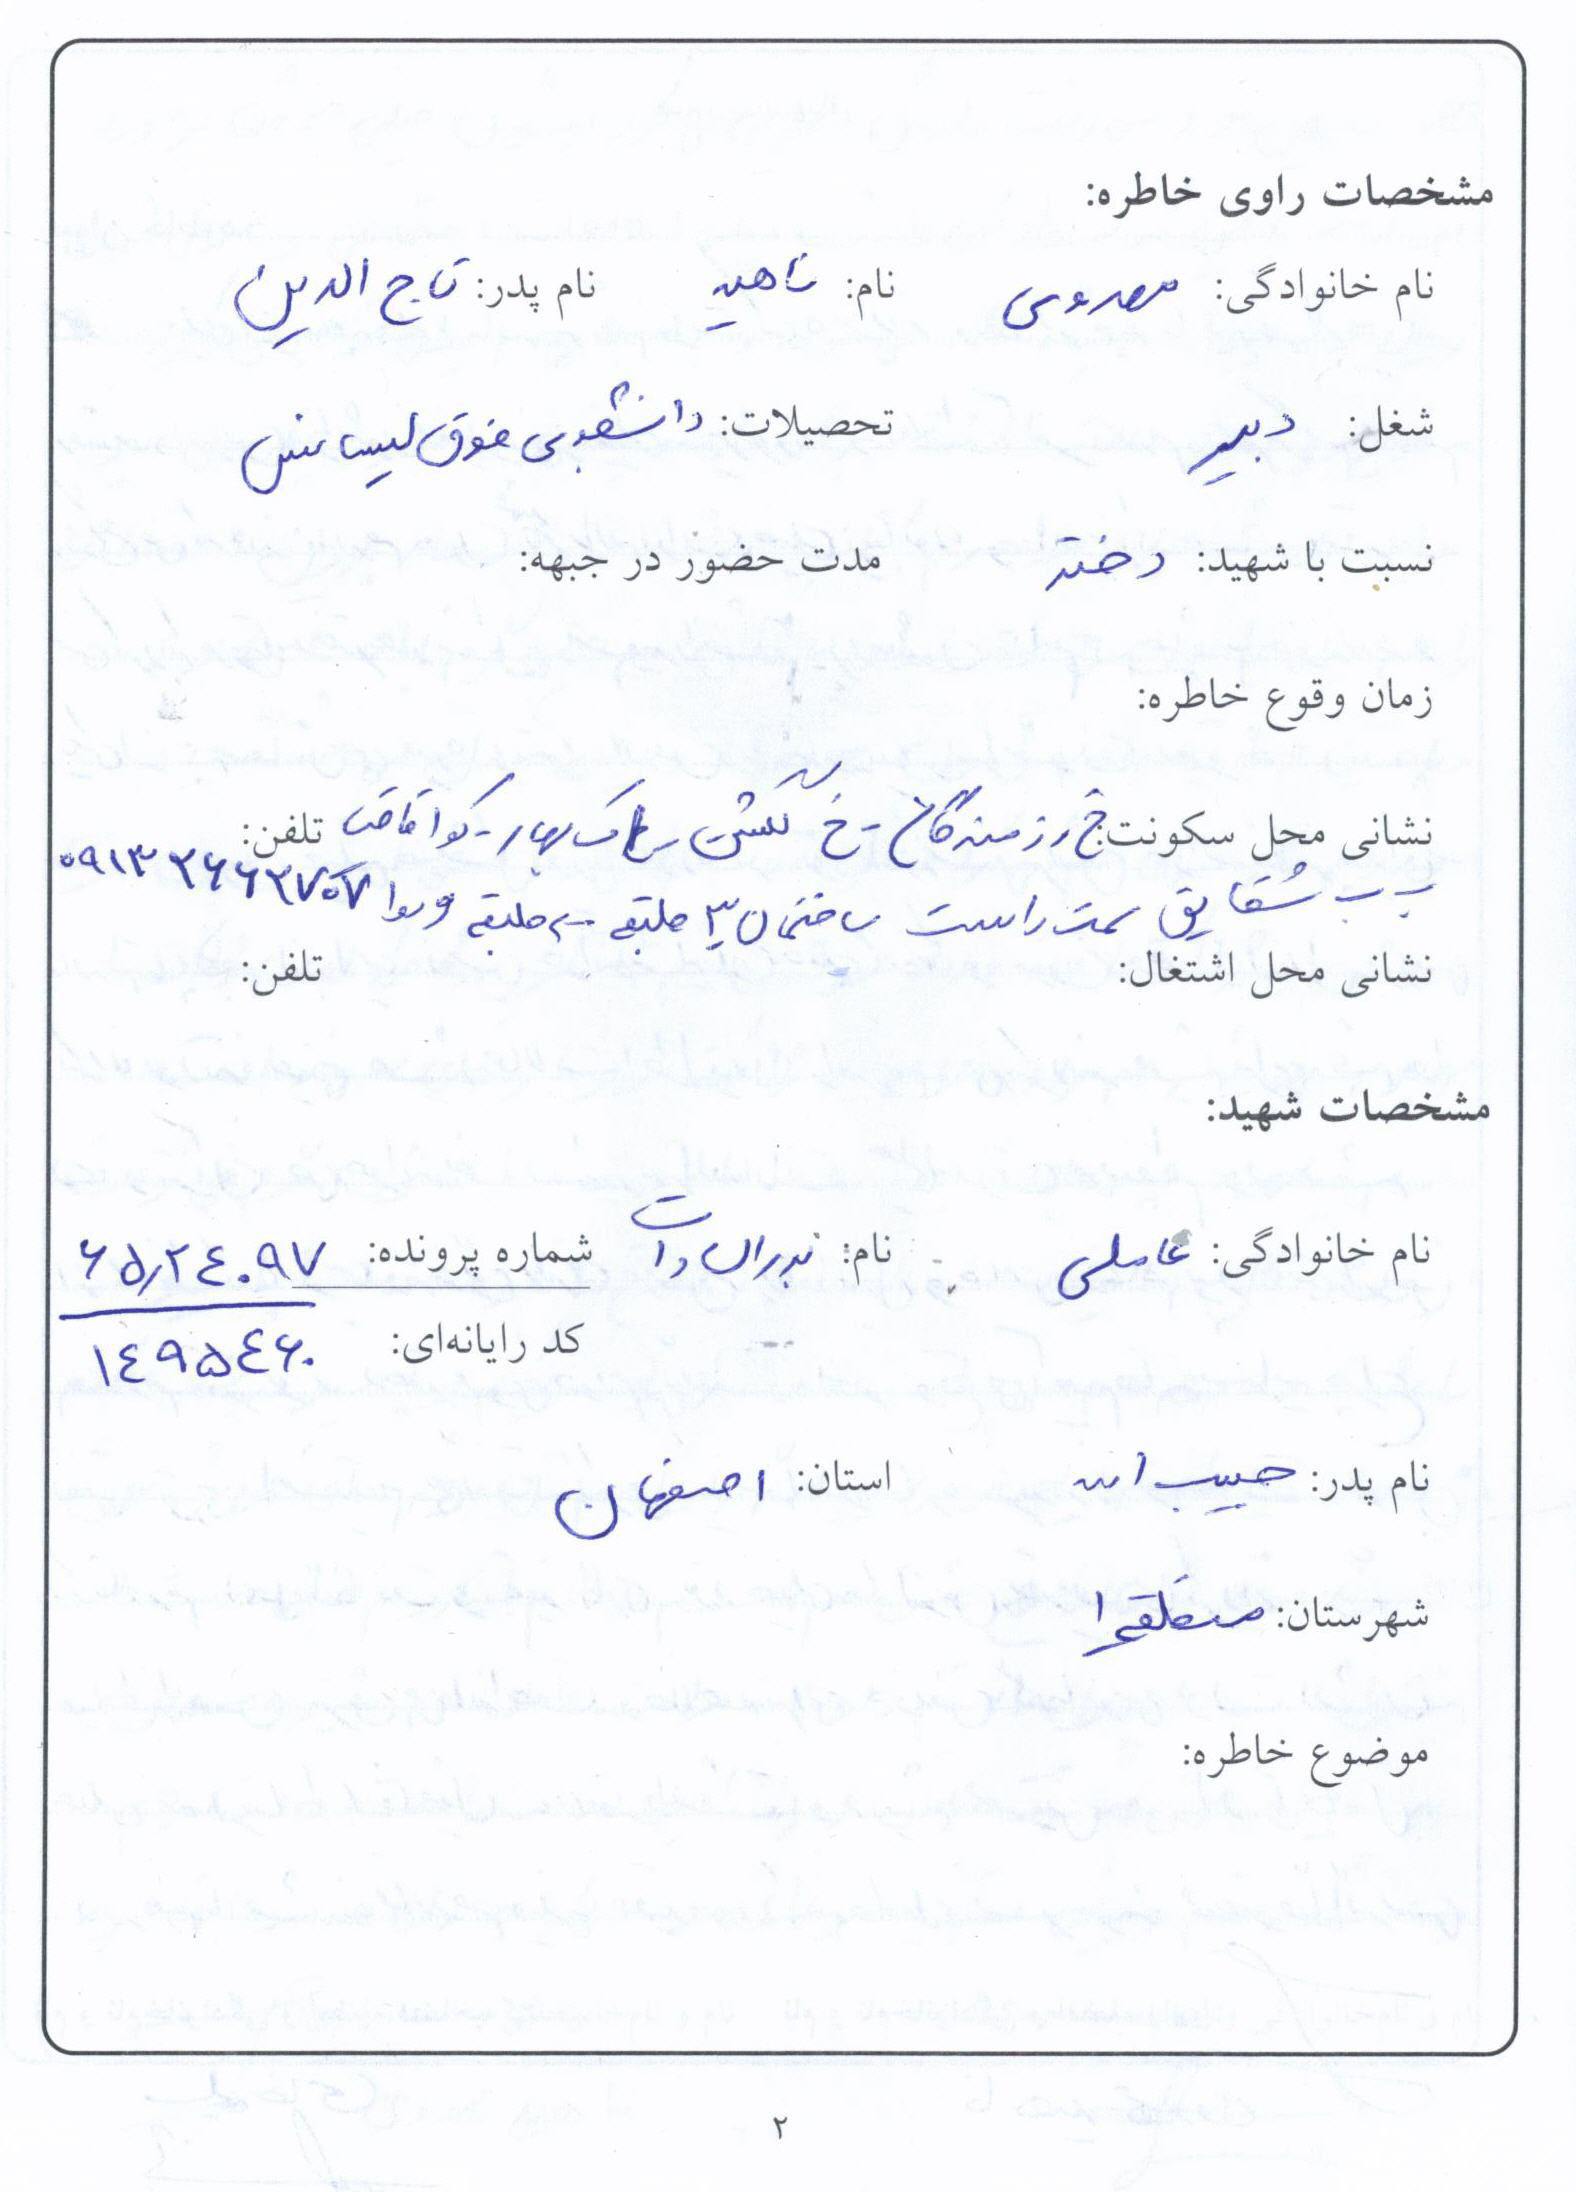 مشخصات راوی خاطره:
نام خانوادگی: مهدوی نام: ناهید نام پدر: تاج الدین
شغل: دبیر تحصیلات: دانشجوی فوق لیسانس
نسبت با شهید: دختر مدت حضور در جبهه:
زمان وقوع خاطره:
نشانی محل سکونت: خ رزمندگان - خ گلستان بهار - کوی تلفن:
بن بست شقایق سمت راست ساختمان ۳ طبقه - طبقه ۰۹۱۳۲۶۶۲۷۰۷
نشانی محل اشتغال: تلفن:
مشخصات شهید:
نام خانوادگی: عاملی نام: بدرالسادات شماره پرونده: ۶۵٫۲۴۰۹۷
کد رایانه‌ای: ۱۴۹۵۴۶۰
نام پدر: حبیب اله استان: اصفهان
شهرستان: منطقه ۱
موضوع خاطره:
۲